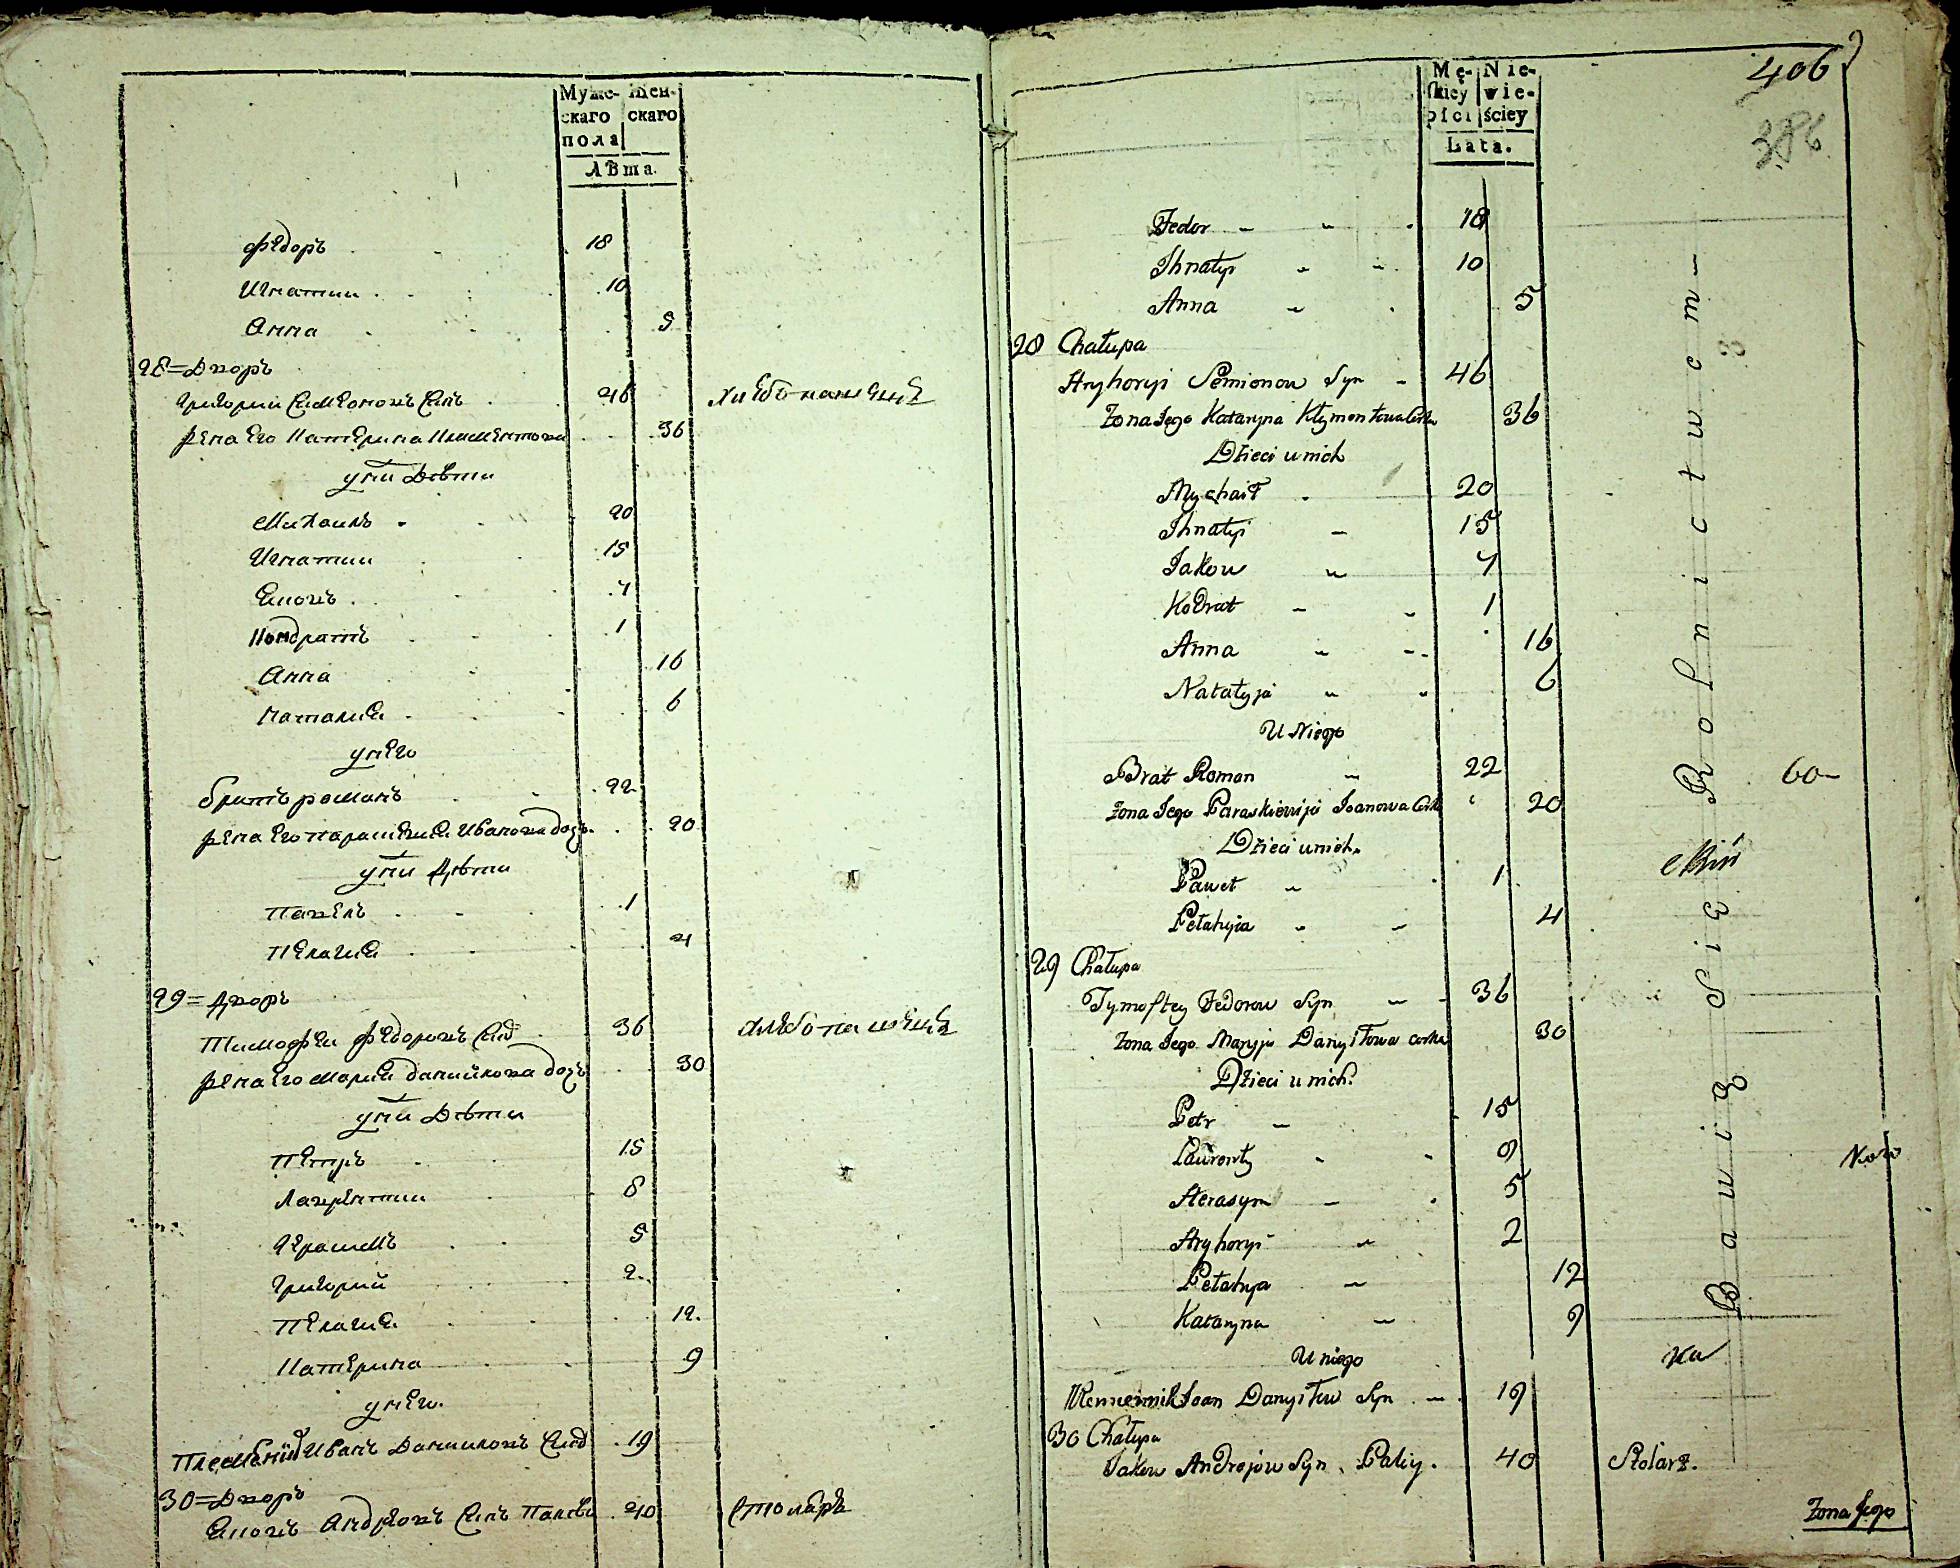 Муже- Жен-
скаго скаго
пола
Лѣта.
Федоръ 18
Игнатий 10
Анна 5
28 = Дворъ
Григорий Симеоновъ Синъ 46 хлѣбопашецъ
жена Его Катерина Климентова 36
у ни Дѣти
Михаилъ 20
Игнатий 15
Яковъ 7
Кондратъ 1
Анна 16
Наталия 6
у него
братъ романъ 22
жена Его параскевия Иванова дочъ 20
у ни Дѣти
Павелъ 1
Пелагия 4
29 = Дворъ
Тимофей Федоровъ Син 36 хлѣбопашецъ
жена Его Мария данийлова дочъ 30
у ни Дѣти
Петръ 15
Лаврентий 8
Герасимъ 5
Григорий 2
Пелагия 12
Катерина 9
у него
Племѣнникъ Иванъ Данииловъ Син 19
30 = Дворъ
Яковъ Андреовъ Синъ 40 столяръ
406
386
Mę- Nie-
skiey wie-
płci ściey
Lata.
Fedor 18
Ihnatyi 10
Anna 5
28 Chałupa
Hryhoryi Semionow Syn 46
Zona Jego Kataryna Kłymontowa Corka 36
Dzieci u nich
Mychaił 20
Ihnatyi 15
Jakow 7
Kodrat 1
Anna 16
Natalyja 6
U Niego
Brat Roman 22
Zona Jego Paraskiewija Joanowa Corka 20
Dzieci u nich.
Paweł 1
Pełahyia 4
29 Chałupa
Tymoftey Fedorow Syn 36
Zona Jego Maryja Danyiłowa corka 30
Dzieci u nich.
Petr 15
Ławronty 8
Herasym 5
Hryhoryi 2
Pełahya 12
Kataryna 9
U niego
Joan Danyiłow Syn 19
30 Chałupa
Jakow Andrejow Syn Paliy. 40 Stolarz.
Bawią Się Rolnictwem
60
Zona Jego